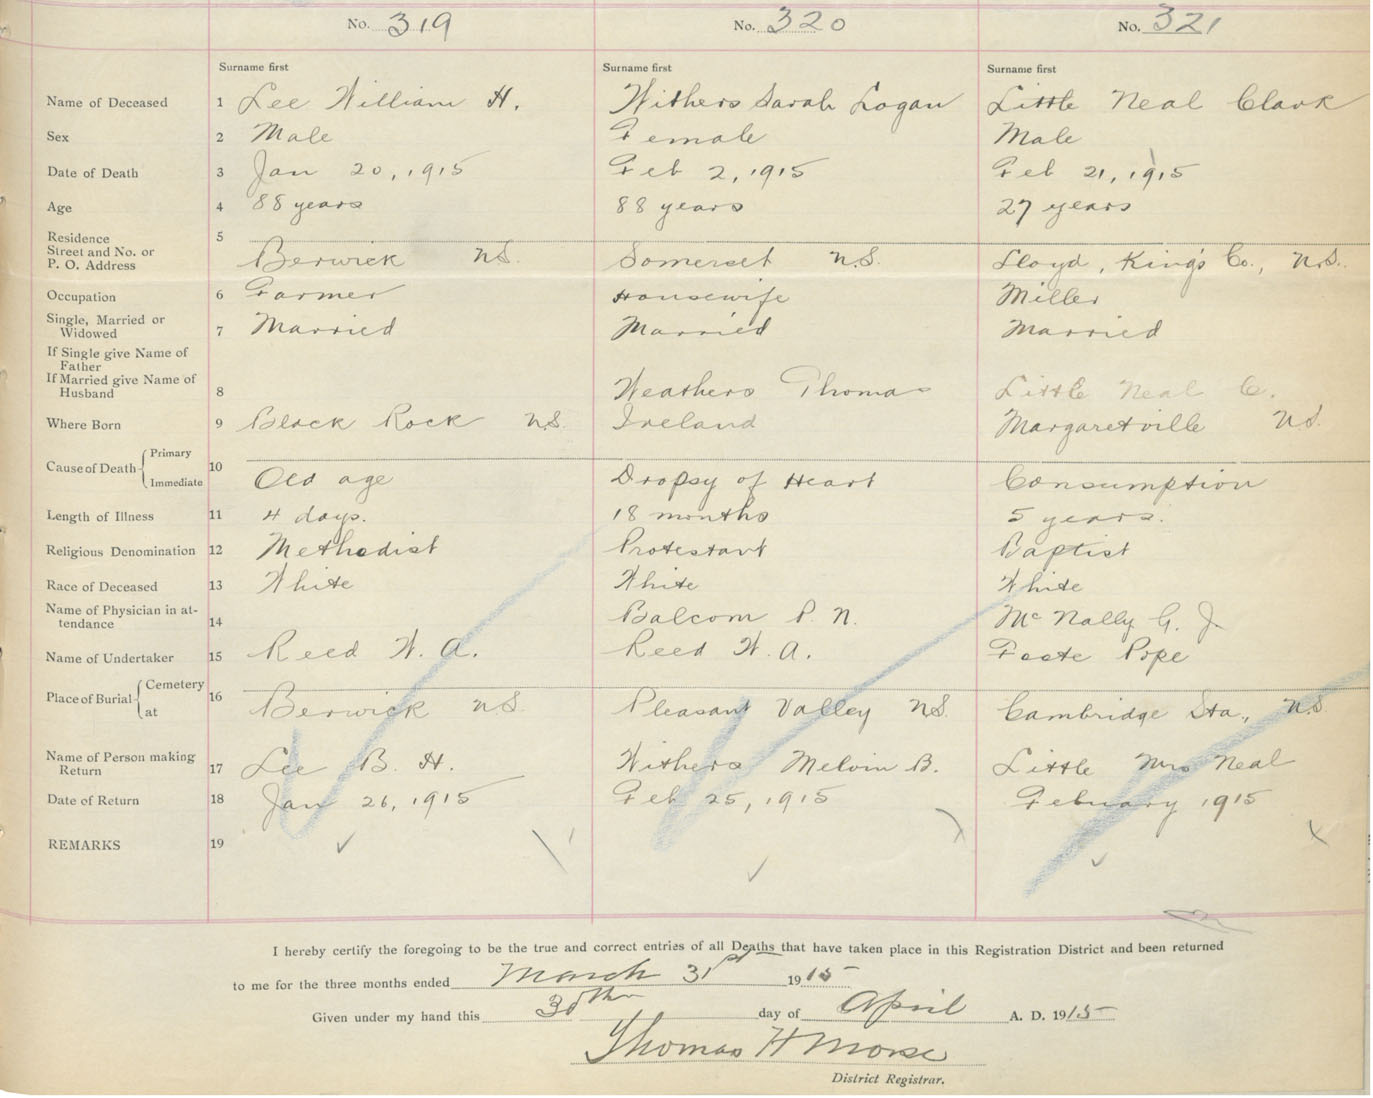 No. 319 No. 320 No. 321
Surname first Surname first Surname first
Name of Deceased 1 Lee William H. Withers Sarah Logan Little Neal Clark
Sex 2 Male Female Male
Date of Death 3 Jan 20, 1915 Feb 2, 1915 Feb 21, 1915
Age 4 88 years 88 years 27 years
Residence 5
Street and No. or
P. O. Address Berwick N.S. Somerset N.S. Lloyd, King's Co., N.S.
Occupation 6 Farmer Housewife Miller
Single, Married or
Widowed 7 Married Married Married
If Single give Name of
Father
If Married give Name of
Husband 8 Weathers Thomas Little Neal C.
Where Born 9 Black Rock N.S. Ireland Margaretville N.S.
Cause of Death Primary 10
Immediate Old age Dropsy of Heart Consumption
Length of Illness 11 4 days. 18 months 5 years.
Religious Denomination 12 Methodist Protestant Baptist
Race of Deceased 13 White White White
Name of Physician in at-
tendance 14 Balcom P. N. McNally G. J.
Name of Undertaker 15 Reed W. A. Reed W. A. Foote Pope
Place of Burial Cemetery 16
at Berwick N.S. Pleasant Valley N.S. Cambridge Sta., N.S.
Name of Person making
Return 17 Lee B. H. Withers Melvin B. Little Mrs Neal
Date of Return 18 Jan 26, 1915 Feb 25, 1915 February 1915
REMARKS 19
I hereby certify the foregoing to be the true and correct entries of all Deaths that have taken place in this Registration District and been returned
to me for the three months ended March 31st 1915
Given under my hand this 30th day of April A. D. 1915
Thomas H Morse
District Registrar.